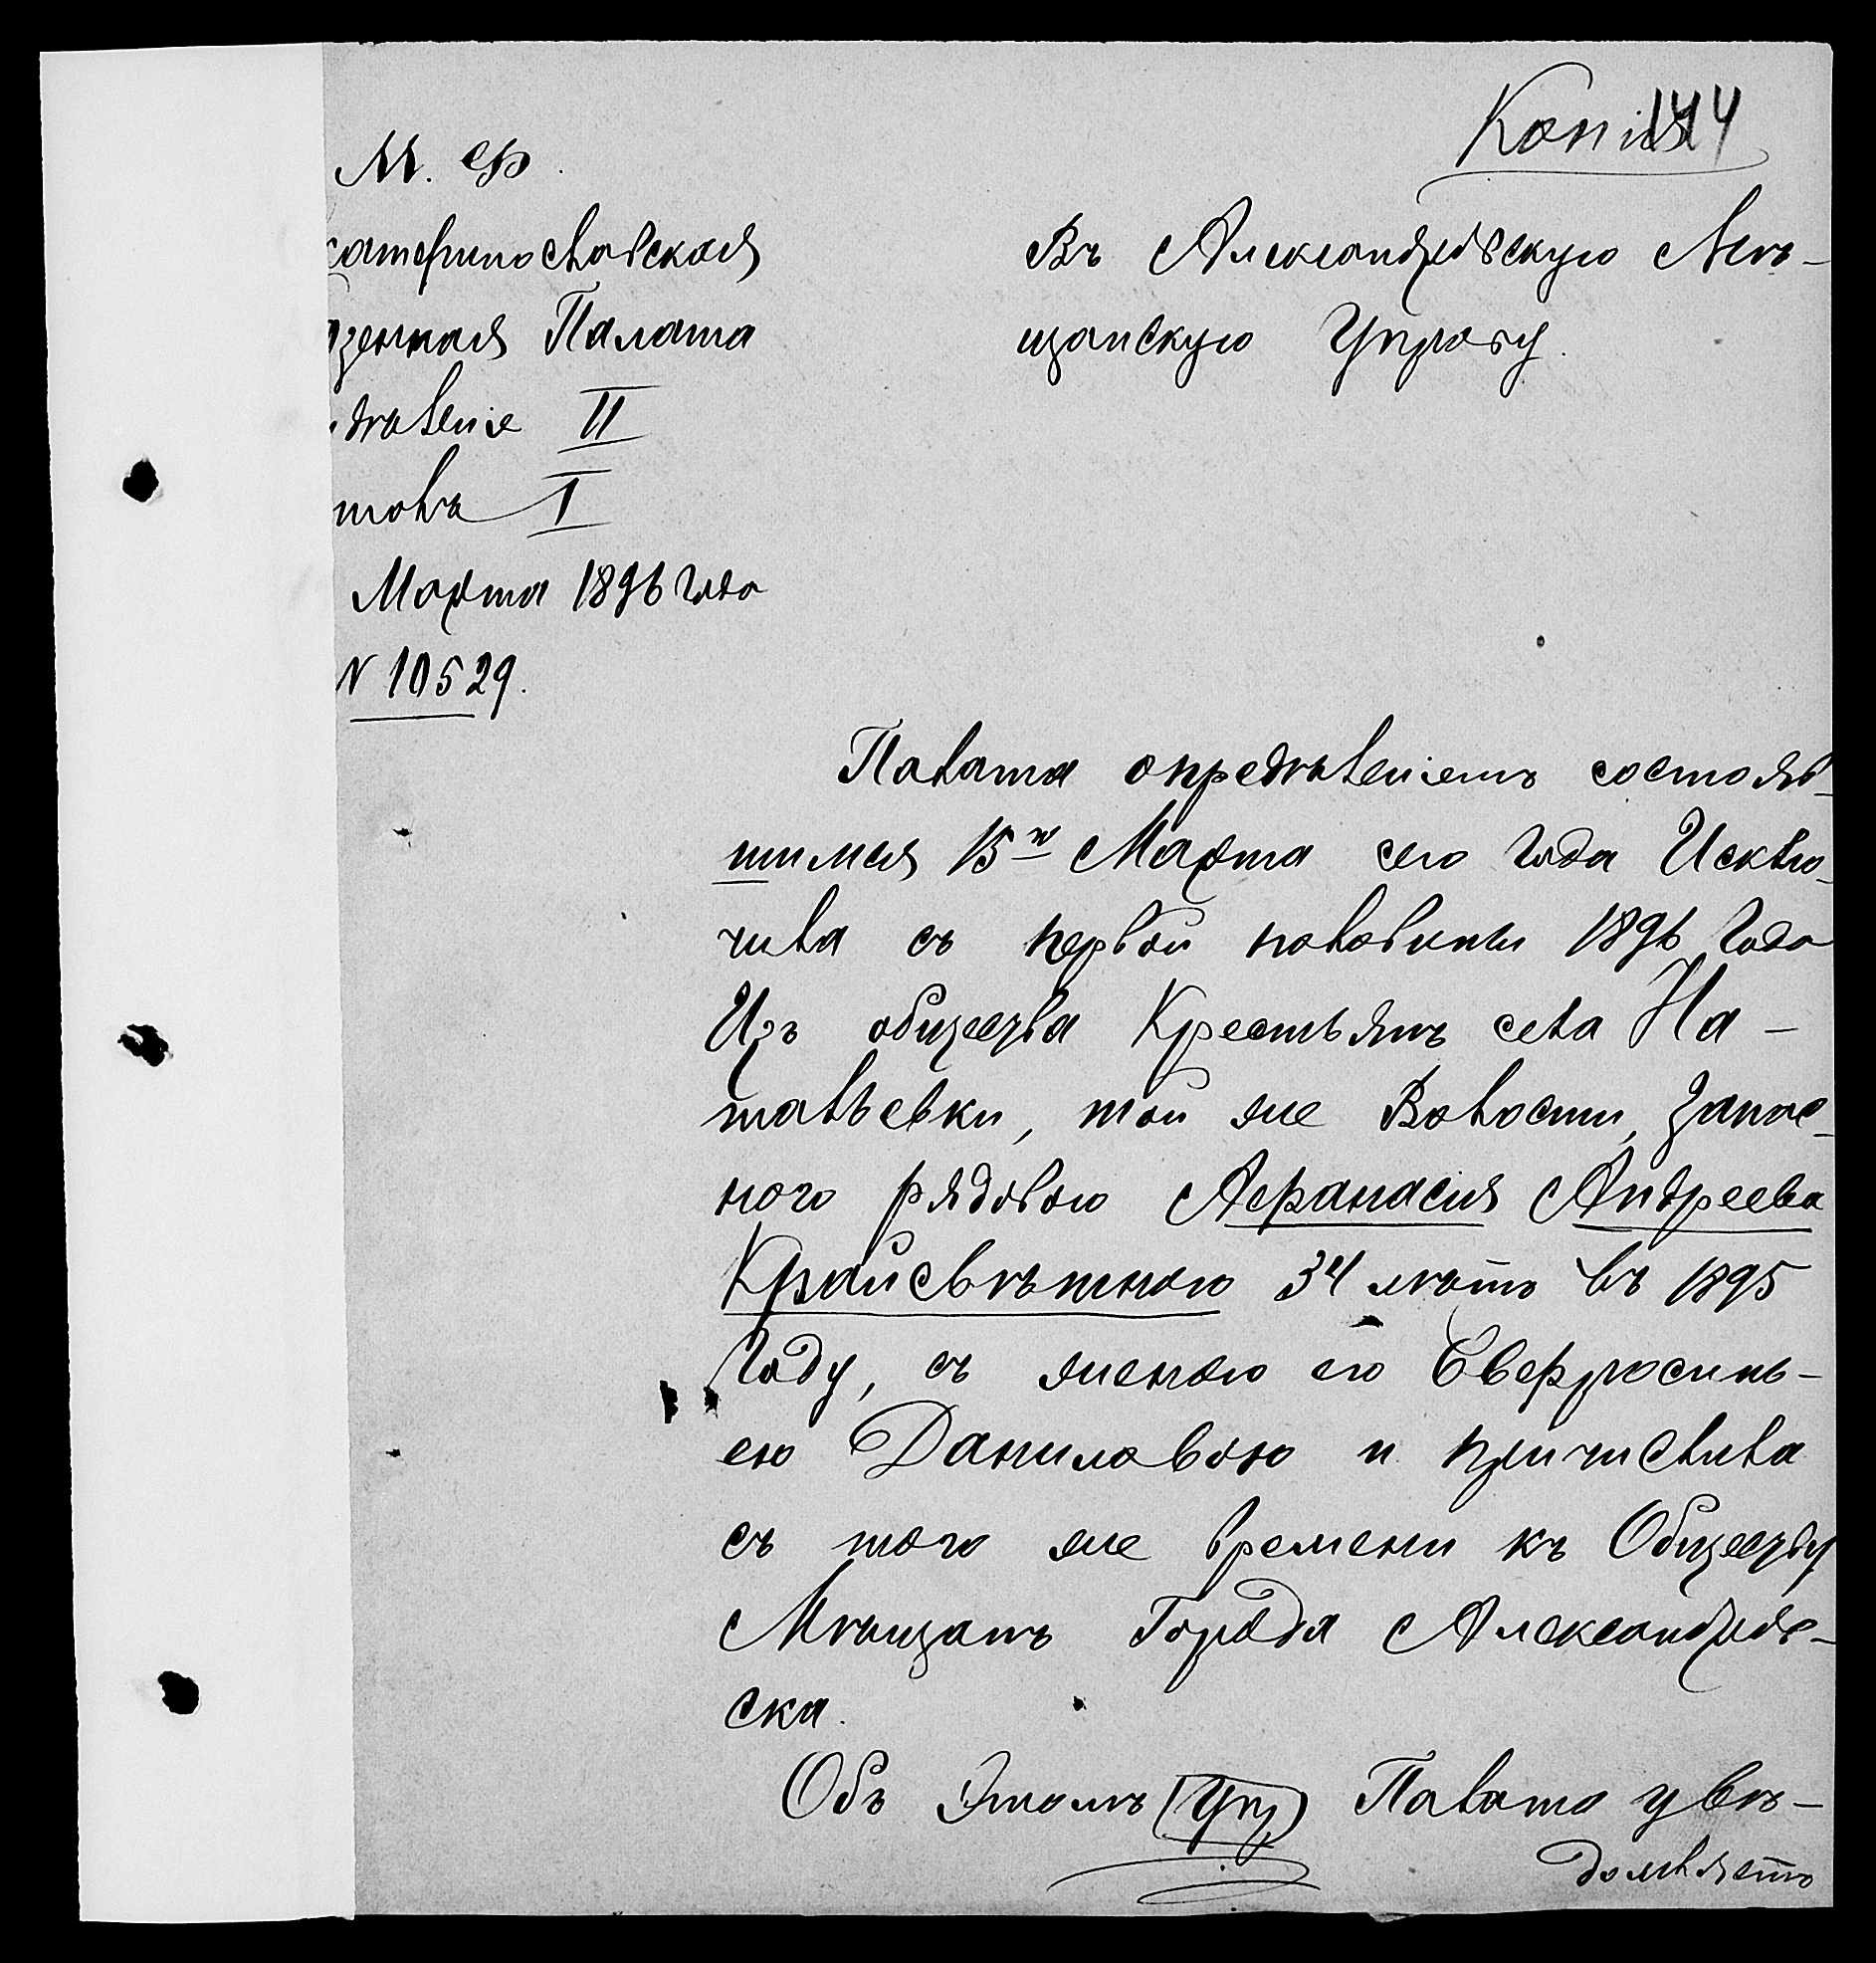 Копія 144
М. Ф.
катеринославская
зенная Палата
дѣленіе II
столъ I
Марта 1896 года
N 10529.
Въ Александровскую Мѣ-
щанскую Управу.
Палата опредѣленіемъ состояв-
шимся 15го Марта сего года Исклю-
чила съ первой половины 1896 года
Изъ общества Крестьянъ села На-
тальевки, той же Волости, запас-
ного рядового Афанасия Андреева
Крайсвѣтнаго 34 лѣтъ въ 1895
году, съ женою его Евфросинь-
ею Даниловою и причислила
съ того же времени къ Обществу
Мѣщанъ Города Александров-
ска.
Объ этомъ (Упр) Палата увѣ-
домляетъ